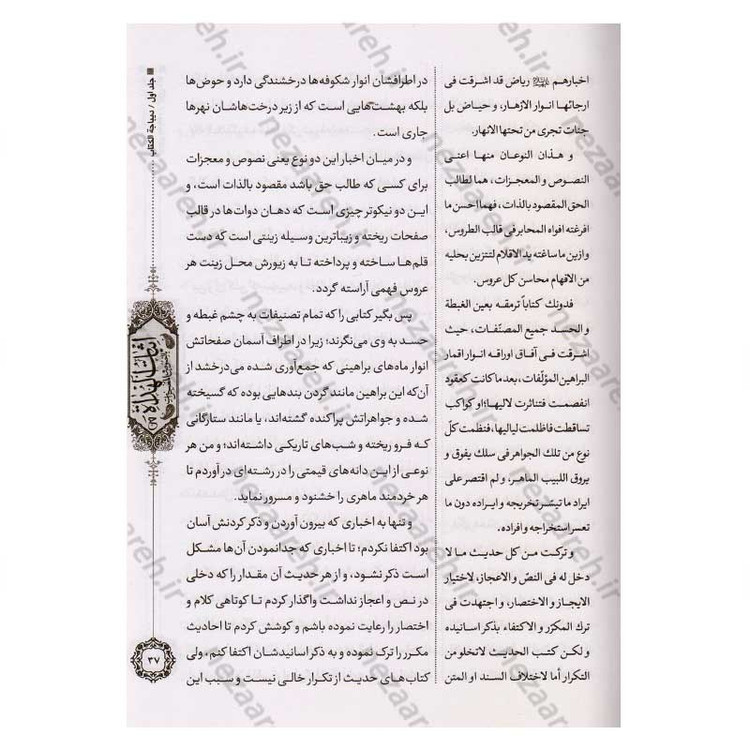 اخبارهم علیهم‌السلام ریاض قد اشرقت فی
ارجائها انوار الازهار، و حیاض بل
جنات تجری من تحتها الانهار.
و هذان النوعان منها اعنی
النصوص و المعجزات، هما لطالب
الحق المقصود بالذات، فهما احسن ما
افرغته افواه المحابر فی قالب الطروس،
و ازین ما ساغته ید الاقلام لتتزین بحلیه
من الافهام محاسن کل عروس.
فدونك کتاباً ترمقه بعین الغبطة
و الحسد جمیع المصنّفات، حیث
اشرقت فی آفاق اوراقه انوار اقمار
البراهین المؤلّفات، بعد ما کانت کعقود
انفصمت فتناثرت لآلیها؛ او کواکب
تساقطت فاظلمت لیالیها، فنظمت کلّ
نوع من تلك الجواهر فی سلك یفوق و
یروق اللبیب الماهر، و لم اقتصر علی
ایراد ما تیسّر تخریجه و ایراده دون ما
تعسر استخراجه و افراده.
و ترکت من کل حدیث ما لا
دخل له فی النصّ و الاعجاز، لاختیار
الایجاز و الاختصار، و اجتهدت فی
ترك المکرّر و الاکتفاء بذکر اسانیده
و لکن کتب الحدیث لا تخلو من
التکرار أما لاختلاف السند او المتن
در اطرافشان انوار شکوفه‌ها درخشندگی دارد و حوض‌ها
بلکه بهشت‌هایی است که از زیر درخت‌هاشان نهرها
جاری است.
و در میان اخبار این دو نوع یعنی نصوص و معجزات
برای کسی که طالب حق باشد مقصود بالذات است، و
این دو نیکوتر چیزی است که دهان دوات‌ها در قالب
صفحات ریخته و زیباترین وسیله زینتی است که دست
قلم‌ها ساخته و پرداخته تا به زیورش محل زینت هر
عروس فهمی آراسته گردد.
پس بگیر کتابی را که تمام تصنیفات به چشم غبطه و
حسد به وی می‌نگرند؛ زیرا در اطراف آسمان صفحاتش
انوار ماه‌های براهینی که جمع‌آوری شده می‌درخشد از
آن‌که این براهین مانند گردن بندهایی بوده که گسیخته
شده و جواهراتش پراکنده گشته‌اند، یا مانند ستارگانی
که فرو ریخته و شب‌های تاریکی داشته‌اند؛ و من هر
نوعی از این دانه‌های قیمتی را در رشته‌ای در آوردم تا
هر خردمند ماهری را خشنود و مسرور نماید.
و تنها به اخباری که بیرون آوردن و ذکر کردنش آسان
بود اکتفا نکردم؛ تا اخباری که جدانمودن آن‌ها مشکل
است ذکر نشود، و از هر حدیث آن مقدار را که دخلی
در نص و اعجاز نداشت واگذار کردم تا کوتاهی کلام و
اختصار را رعایت نموده باشم و کوشش کردم تا احادیث
مکرر را ترک نموده و به ذکر اسانیدشان اکتفا کنم، ولی
کتاب‌های حدیث از تکرار خالی نیست و سبب این
جلد اول / دیباجة الکتاب
اثبات الهداة
۳۷
nezaareh.ir